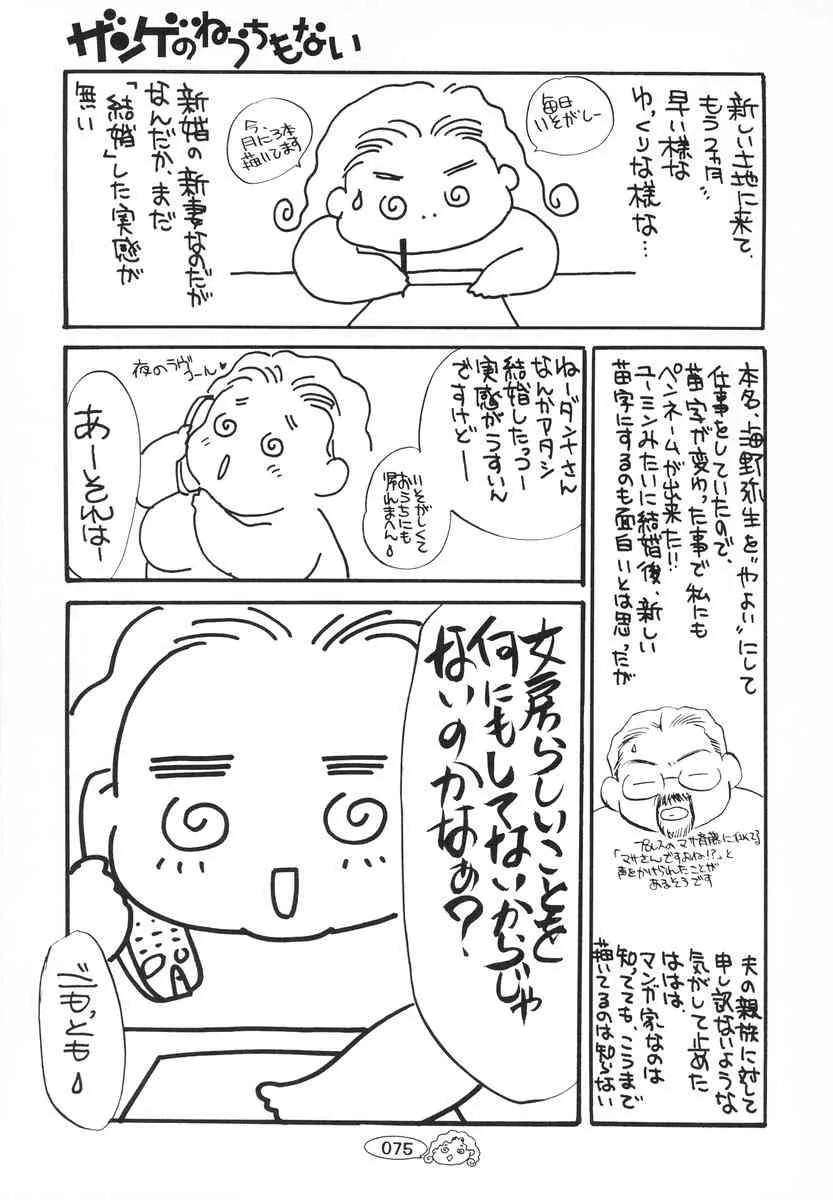 ザンゲのねうちもない
新しい土地に来て、
もう2ヵ月
早い様な
ゆっくりな様な…
毎日
いそがしー
今、
月に3本
描いてます
新婚の新妻なのだが
なんだか、まだ
「結婚」した実感が
無い
本名、海野弥生を"やよい"にして
仕事をしていたので、
苗字が変わった事で私にも
ペンネームが出来た!!
ユーミンみたいに結婚後、新しい
苗字にするのも面白いとは思ったが
プロレスのマサ斉藤に似てる
「マサさんですよね!?」と
声をかけられたことが
あるそうです
夫の親族に対して
申し訳ないような
気がして止めた
ははは、
マンガ家なのは
知ってても、こうまで
描いてるのは知らない
ねーダンナさん
なんかアタシ
結婚したっつー
実感がうすいん
ですけどー
いそがしくて
おうちにも
帰れまへん
夜のラヴ
コーん♥
あーそれはー
女房らしいことを
何にもしてないからじゃ
ないのかなぁ?
ごもっとも
075